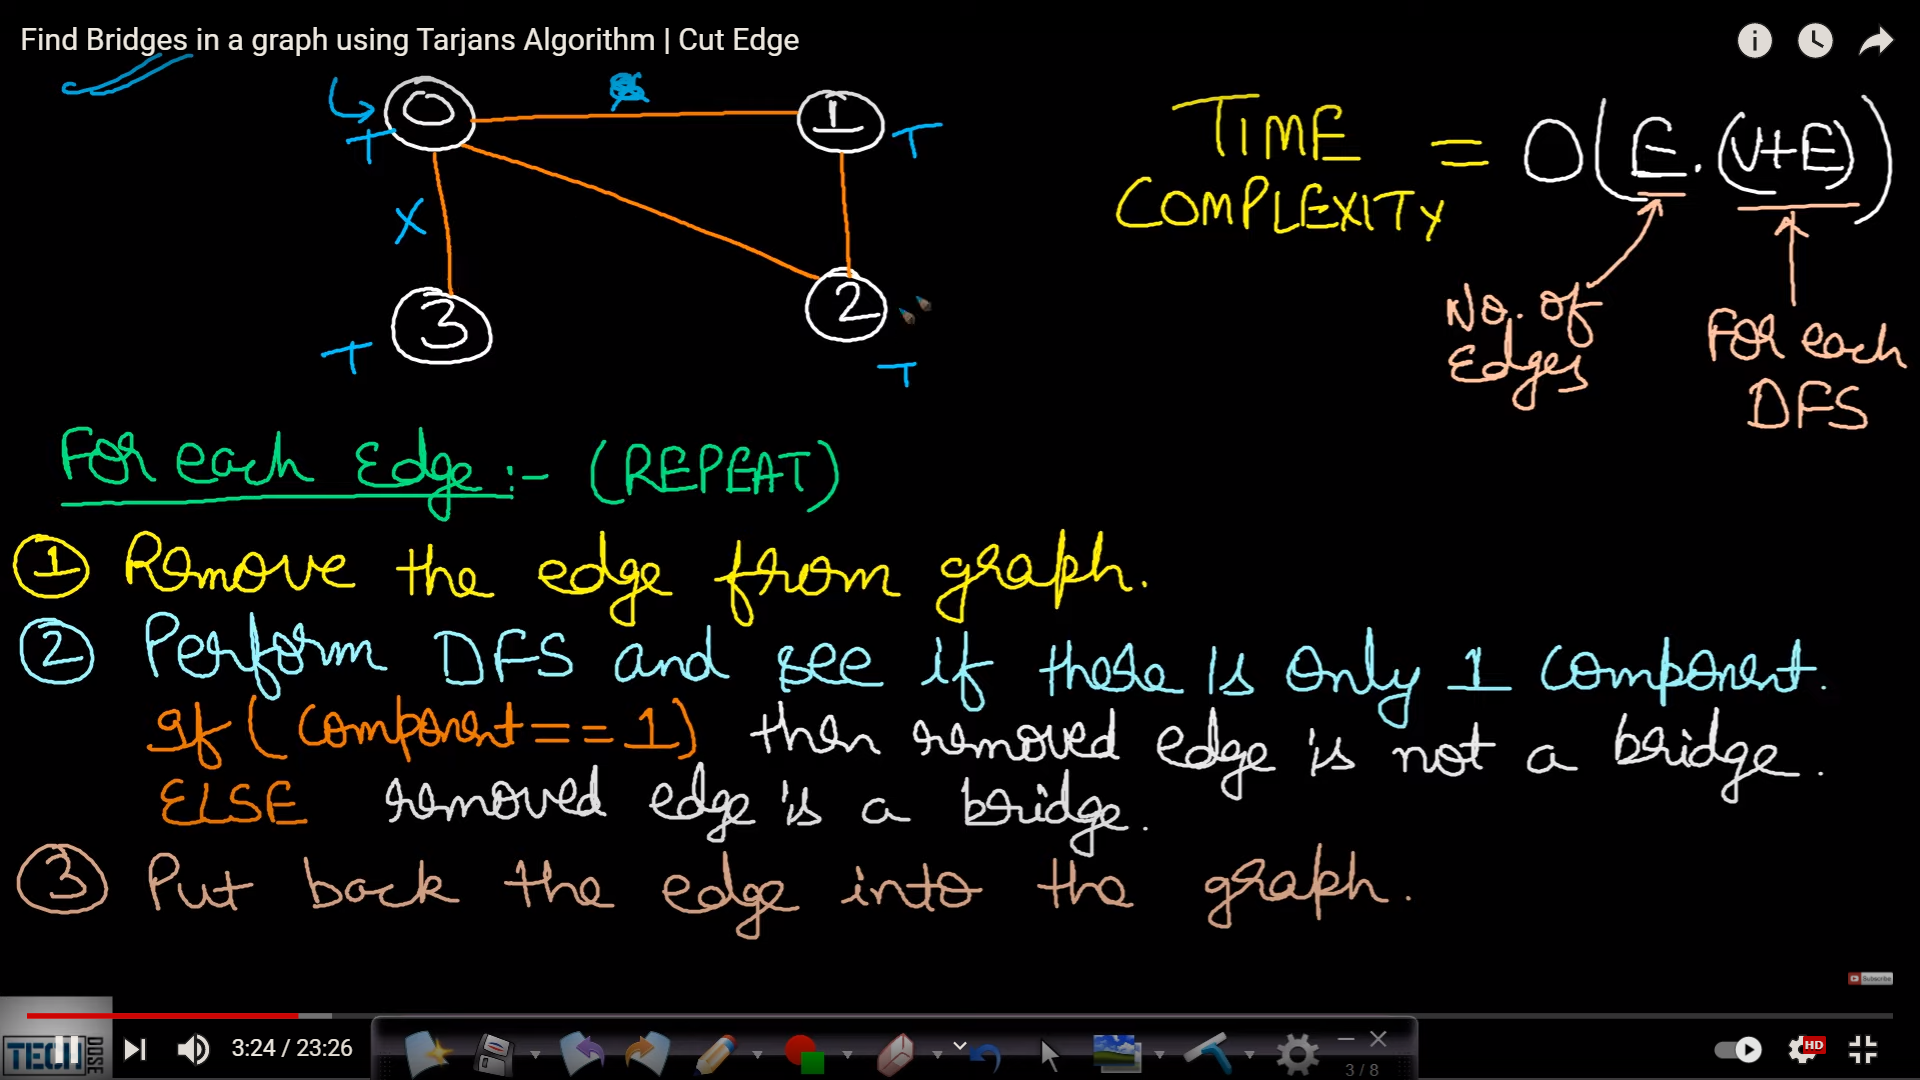 Find Bridges in a graph using Tarjans Algorithm | Cut Edge
0
1
T
T
X
3
2
T
T
TIME COMPLEXITY = O(E.(V+E))
No. of Edges
For each DFS
For each Edge :- (REPEAT)
1 Remove the edge from graph.
2 Perform DFS and see if there is only 1 component.
If (Component == 1) then removed edge is not a bridge.
ELSE removed edge is a bridge.
3 Put back the edge into the graph.
Subscribe
TECH DOSE
3:24 / 23:26
HD
3 / 8